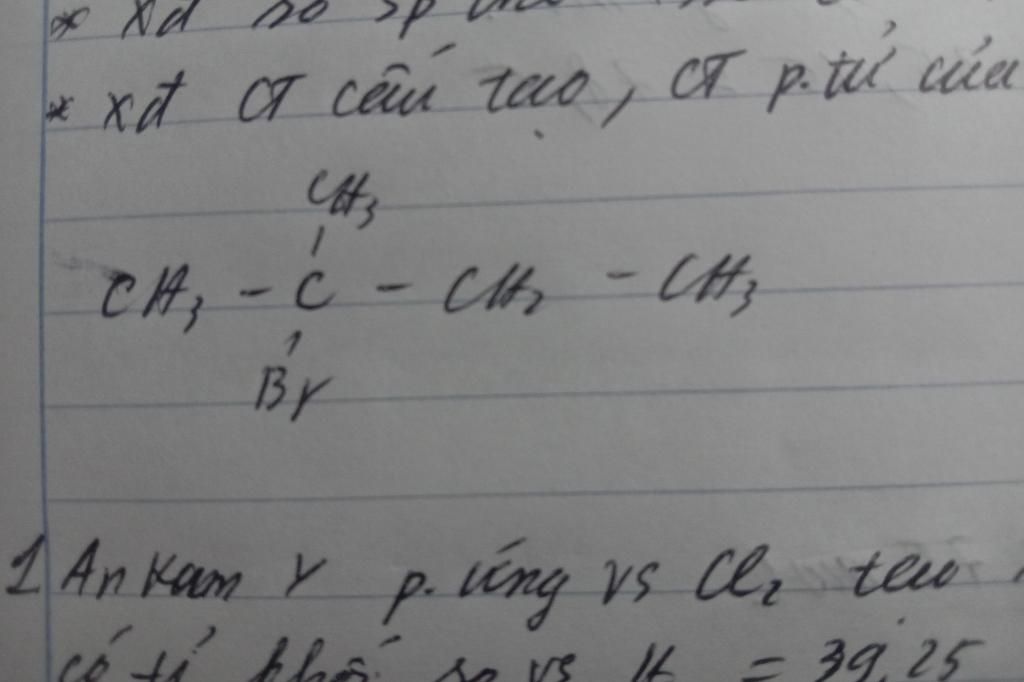 * xđ số sp
* xđ CT cấu tạo, CT p.tử của
CH3
CH3 - C - CH2 - CH3
Br
1 Ankan Y p.ứng vs Cl2 tạo
có tỉ khối so vs H = 39,25